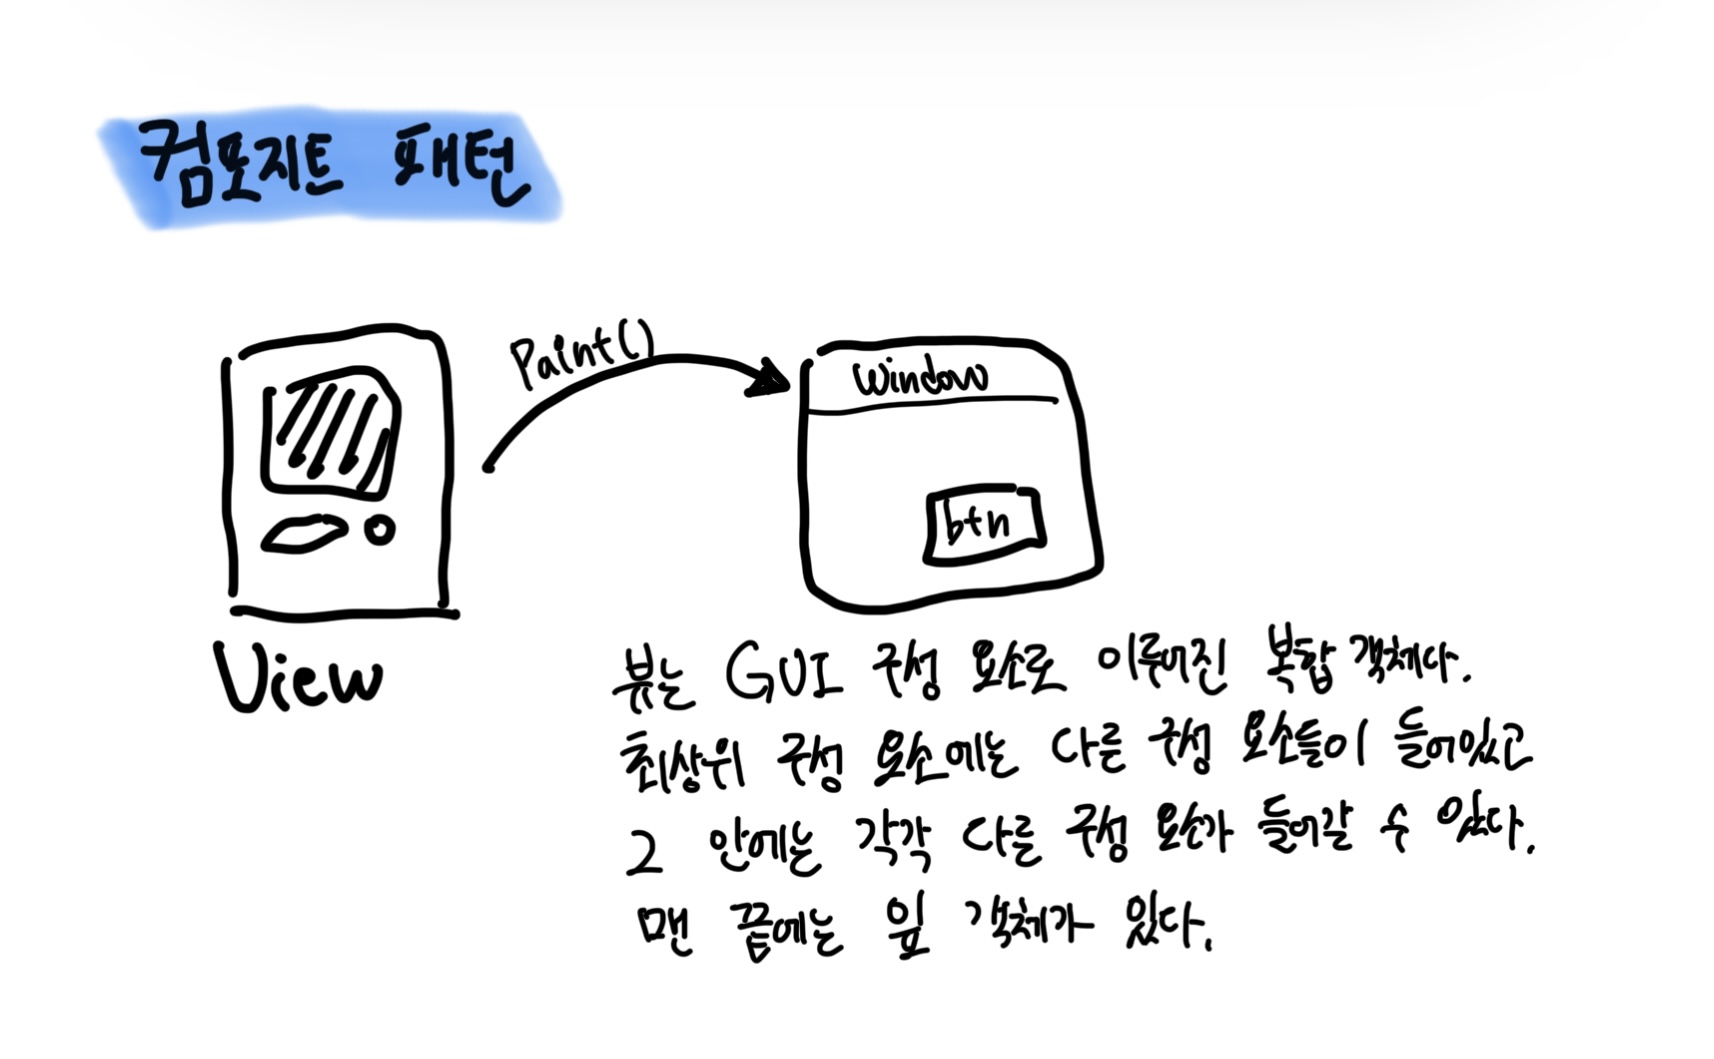 컴포지트 패턴
Paint()
Window
btn
View
뷰는 GUI 구성 요소로 이루어진 복합 객체다.
최상위 구성 요소에는 다른 구성 요소들이 들어있고
그 안에는 각각 다른 구성 요소가 들어갈 수 있다.
맨 끝에는 잎 객체가 있다.